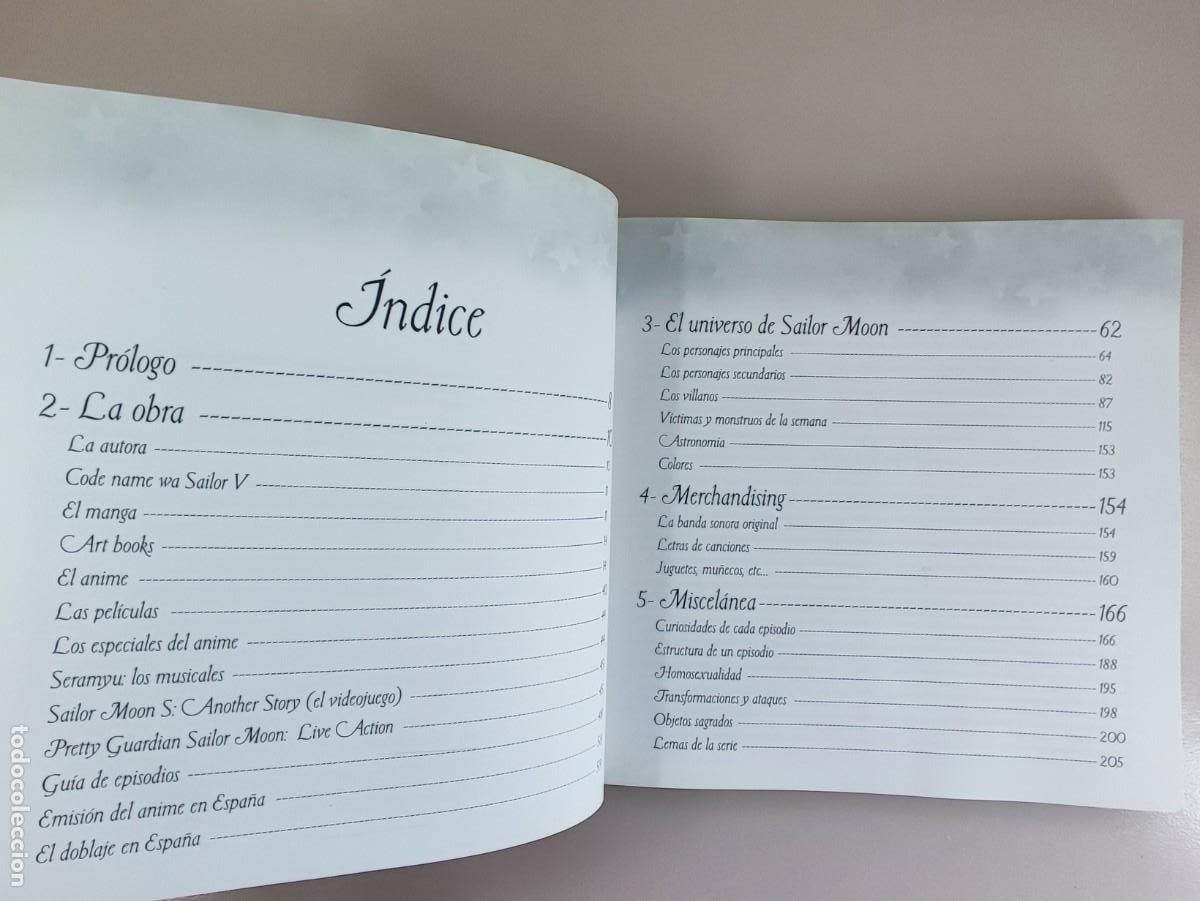 Índice
1- Prólogo 8
2- La obra 10
La autora
Code name wa Sailor V
El manga
Art books
El anime
Las películas
Los especiales del anime
Seramyu: los musicales
Sailor Moon S: Another Story (el videojuego)
Pretty Guardian Sailor Moon: Live Action
Guía de episodios
Emisión del anime en España
El doblaje en España
3- El universo de Sailor Moon 62
Los personajes principales 64
Los personajes secundarios 82
Los villanos 87
Víctimas y monstruos de la semana 115
Astronomía 153
Colores 153
4- Merchandising 154
La banda sonora original 154
Letras de canciones 159
Juguetes, muñecos, etc... 160
5- Miscelánea 166
Curiosidades de cada episodio 166
Estructura de un episodio 188
Homosexualidad 195
Transformaciones y ataques 198
Objetos sagrados 200
Lemas de la serie 205
todocoleccion